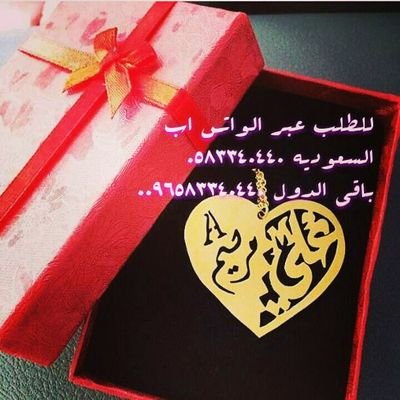 للطلب عبر الواتس اب
السعوديه ٠٥٨٣٣٤٠٤٤٠
باقى الدول ٠٠٩٦٥٨٣٣٤٠٤٤٠
علي مريم